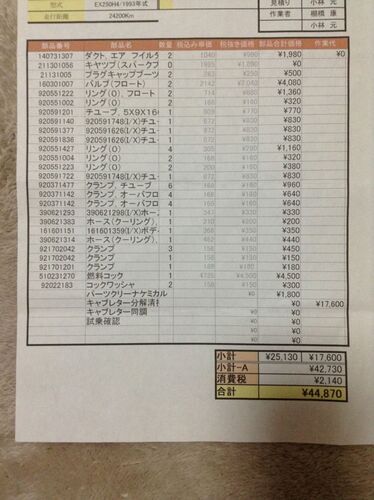 型式 EX250H4/1993年式 見積り 小林 元
走行距離 24200Km 作業者 棚橋 康
小林 元
部品番号 部品名 数量 税込み単価 税抜き価格 部品合計価格 作業代
140731307 ダクト,エア フイルタ 2 1040 ¥1,980 ¥0
211301058 キヤツプ(スパークプ 0 ¥0
21131005 プラグキャップブーツ 2 263 ¥250 ¥500
160301007 バルブ(フロート) 2 2142 ¥2,040 ¥4,080
920551222 リング(O) 2 714 ¥680 ¥1,360
920551002 リング(O) 2 168 ¥160 ¥320
920591201 チューブ,5X9X16 1 ¥770
920591140 920591748(I/X)チユー 1 872 ¥830 ¥830
920591377 920591626(I/X)チユー 1 872 ¥830 ¥830
920591836 920591626(I/X)チユー 1 872 ¥830 ¥830
920551427 リング(O) 4 305 ¥290 ¥1,160
920551004 リング(O) 2 168 ¥160 ¥320
920551223 リング(O) 2 ¥380
920591722 920591748(I/X)チユー 1 872 ¥830 ¥830
920371477 クランプ,チユーブ 6 168 ¥160 ¥960
920371142 クランプ,オーバフロ 4 168 ¥160 ¥640
920371142 クランプ,オーバフロ 4 168 ¥160 ¥640
390621293 390621298(I/X)ホー 1 347 ¥330 ¥330
390621383 ホース(クーリング), 1 210 ¥200 ¥200
161601151 161601359(I/X)ボデ 1 ¥350
390621314 ホース(クーリング), 1 462 ¥440 ¥440
921702042 クランプ 3 158 ¥150 ¥450
921702042 クランプ 1 158 ¥150 ¥150
921701201 クランプ 1 ¥180 ¥180
510231270 燃料コック 1 4725 ¥4,500 ¥4,500
92022183 コックワッシャ 2 158 ¥150 ¥300
パーツクリーナケミカル ¥0 ¥1,800
キャブレター分解清掃 ¥0 ¥17,600
キャブレター同調 ¥0
試乗確認 ¥0
小計 ¥25,130 ¥17,600
小計-A ¥42,730
消費税 ¥2,140
合計 ¥44,870